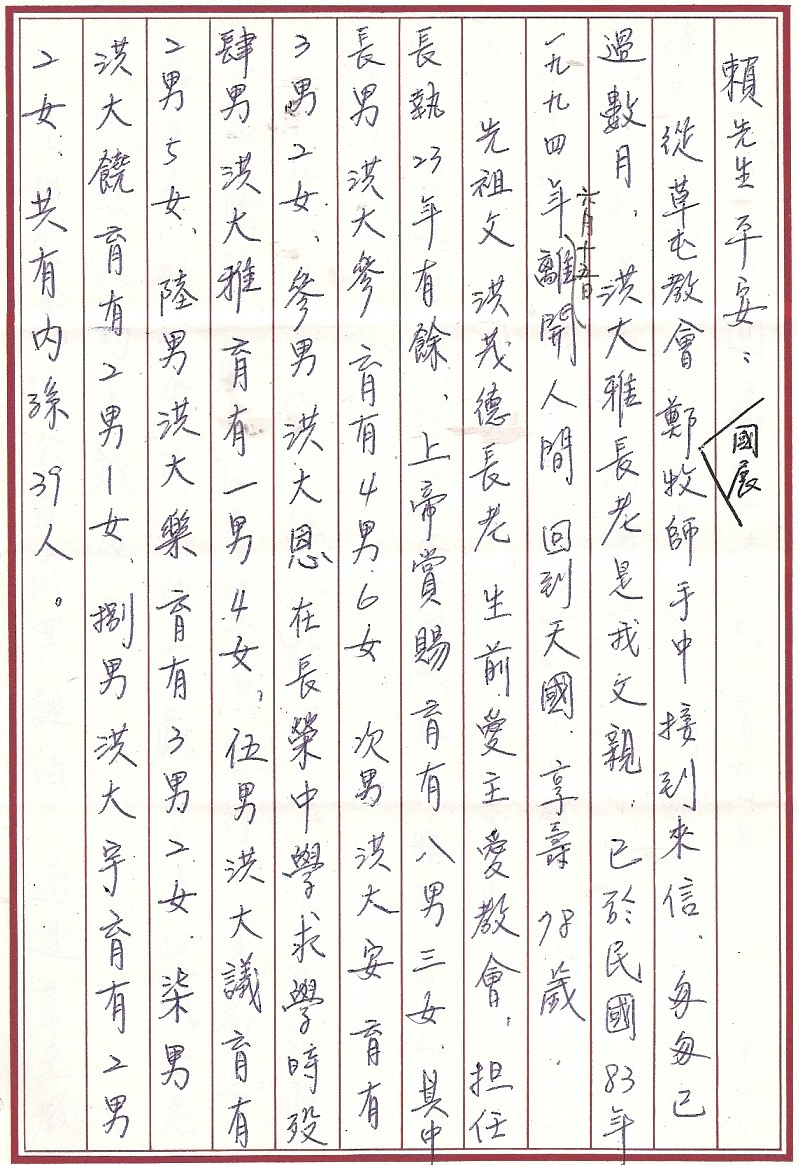 賴先生平安：
從草屯教會鄭國展牧師手中接到來信．匆匆已
過數月，洪大雅長老是我父親．已於民國83年
一九九四年六月十五日離開人間 回到天國．享壽78歲．
先祖父 洪茂德長老 生前愛主愛教會，担任
長執23年有餘．上帝賞賜育有八男三女．其中
長男 洪大參 育有4男6女 次男 洪大安 育有
3男2女、參男 洪大恩在長榮中學求學時歿
肆男 洪大雅 育有一男4女，伍男 洪大議 育有
2男5女、陸男洪大樂育有3男2女．柒男
洪大饒育有2男1女、捌男洪大宇育有2男
2女．共有內孫39人。